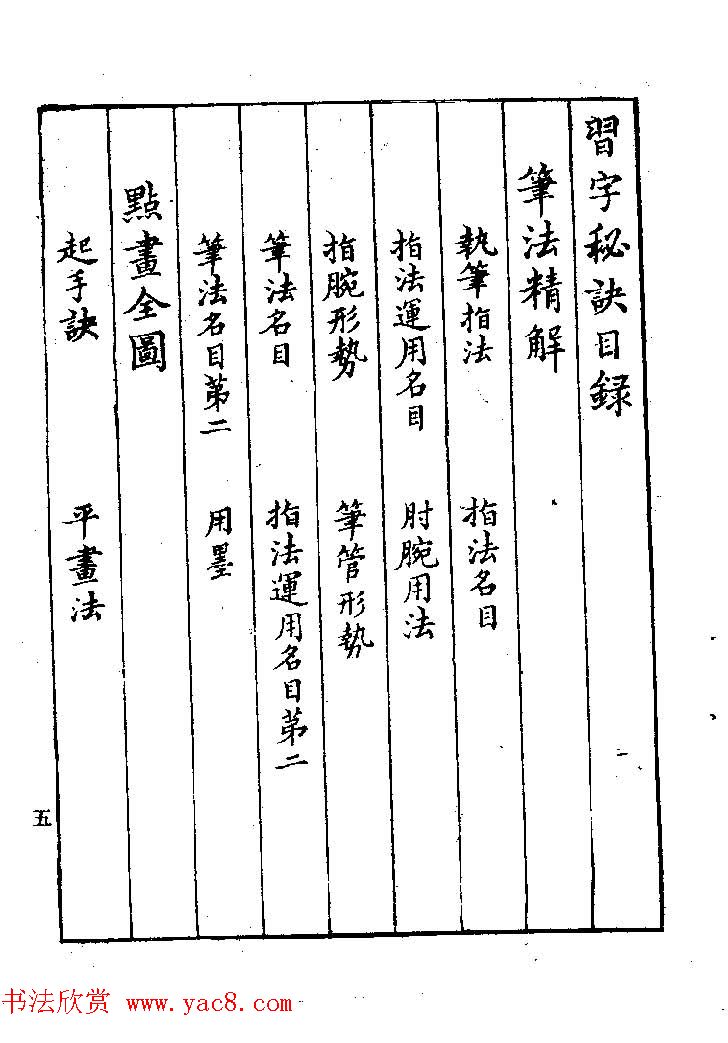 習字秘訣目錄
筆法精解
執筆指法　指法名目
指法運用名目　肘腕用法
指腕形勢　筆管形勢
筆法名目　指法運用名目第二
筆法名目第二　用墨
點畫全圖
起手訣　平畫法
五
书法欣赏 www.yac8.com